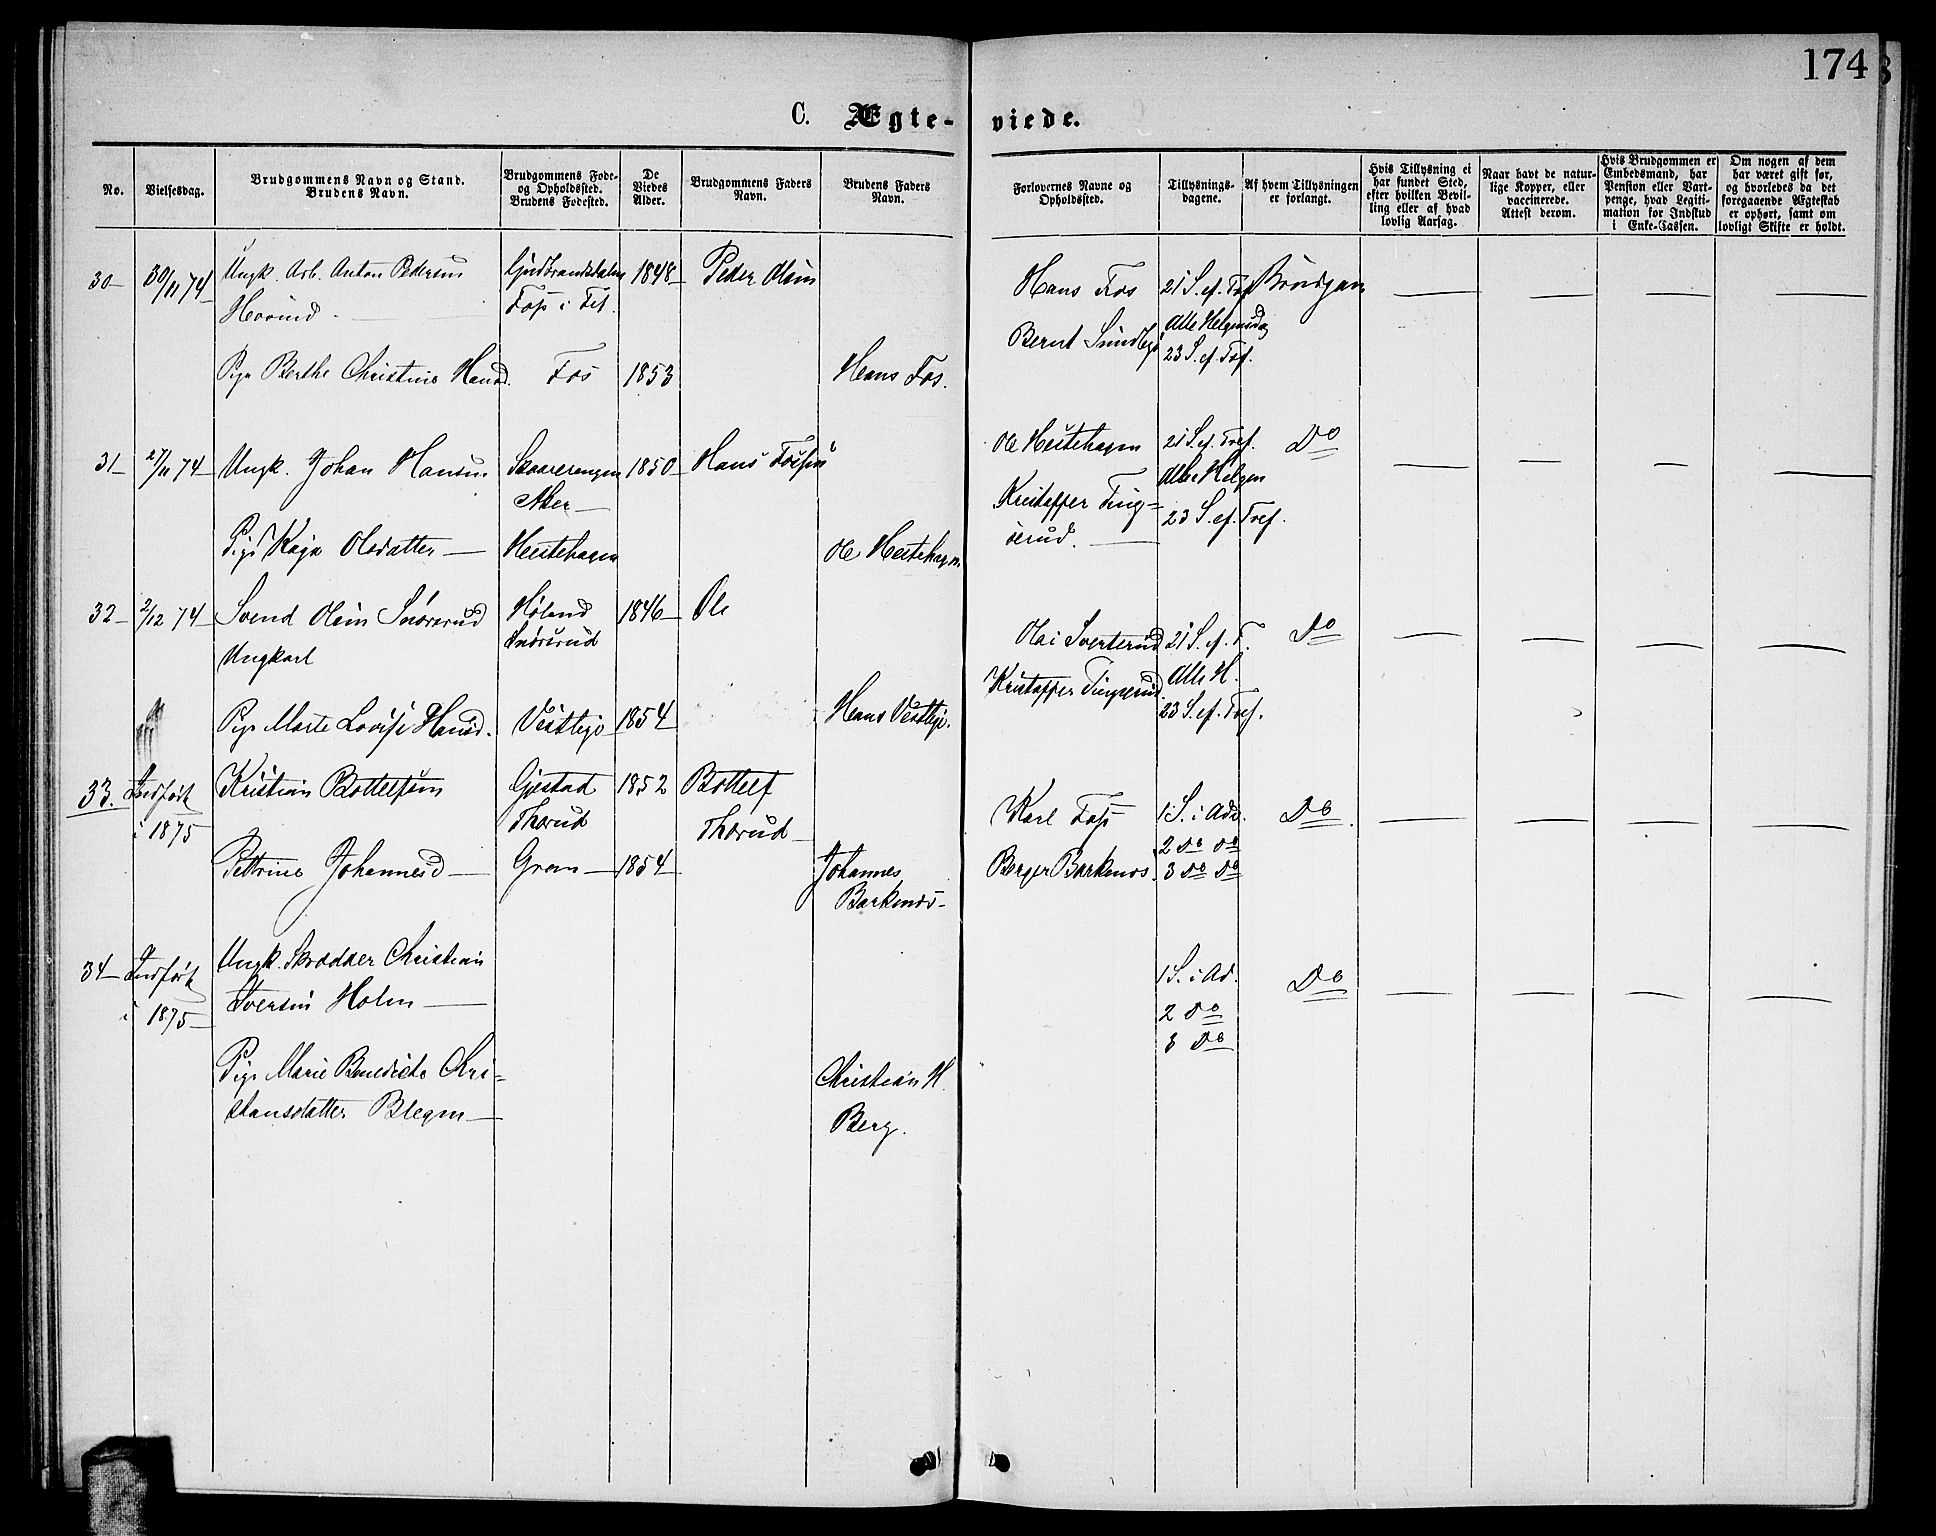 174
C. Ægte- viede.
No.
Vielsesdag.
Brudgommens Navn og Stand.
Brudens Navn.
Brudgommens Føde-
og Opholdssted.
Brudens Fødested.
De
Viedes
Alder.
Brudgommens Faders
Navn.
Brudens Faders
Navn.
Forlovernes Navne og
Opholdssted.
Tillysnings-
dagene.
Af hvem Tillysningen
er forlangt.
Hvis Tillysning ei
har fundet Sted,
efter hvilken Bevil-
ling eller af hvad
lovlig Aarsag.
Naar havt de natur-
lige Kopper, eller
vaccinerede.
Attest derom.
Hvis Brudgommen er
Embedsmand, har
Pension eller Vart-
penge, hvad Legiti-
mation for Indskud
i Enke-Cassen.
Om nogen af dem
har været gift før,
og hvorledes da det
foregaaende Ægteskab
er ophørt, samt om
lovligt Skifte er holdt.
30 — 30/11 74 — Ungk. Arb. Anton Pedersen
Hovind
Gudbrandsdalen
Foss i Fet.
1848 —
Peder Olsen
Hans Fos
Bernt
21 S. ef. Tref
Alle Helgensdag
23 S. ef. Tref.
Brudgom
Pige Berthe Christine Hansd.
Fos
1853
Hans Fos.
31 — 27/11 74 — Ungk. Johan Hansen
Skaarerengen
Aker —
1850 —
Hans
Ole Hestehagen
Kristoffer Ting=
serud. —
21 S. ef. Tref.
Alle Helgen
23 S. ef. Tref.
Do
Pige Kaja Olsdatter —
Hestehagen
Ole Hestehagen
32 — 2/12 74 — Svend Olsen Snorerud
Ungkarl
Høland
1846 —
Ole
Olai Sverterud
Kristoffer Tingserud
21 S. ef. T.
Alle H.
23 S. ef. Tref.
Do
Pige Marte Lovise Hansd.
Vestbye
1854
Hans Vestbye.
33. Indført
i 1875
Kristian Bottelfsen
Gjestad
Thorud
1852
Bottelf
Thorud —
Karl Foss
Berger Barkenes
1 S. i Adv.
2 Do Do
3 Do Do
Do
Pettrine Johannesd —
Gran —
1854
Johannes
Barkenæs —
34 — Indført
i 1875 —
Ungk. Skrædder Christian
Iversen Holm —
1 S. i Ad.
2 Do
3 Do
Do
Pige Marie Benedicte Chri-
stiansdatter Blegen —
Christian H.
Berg.